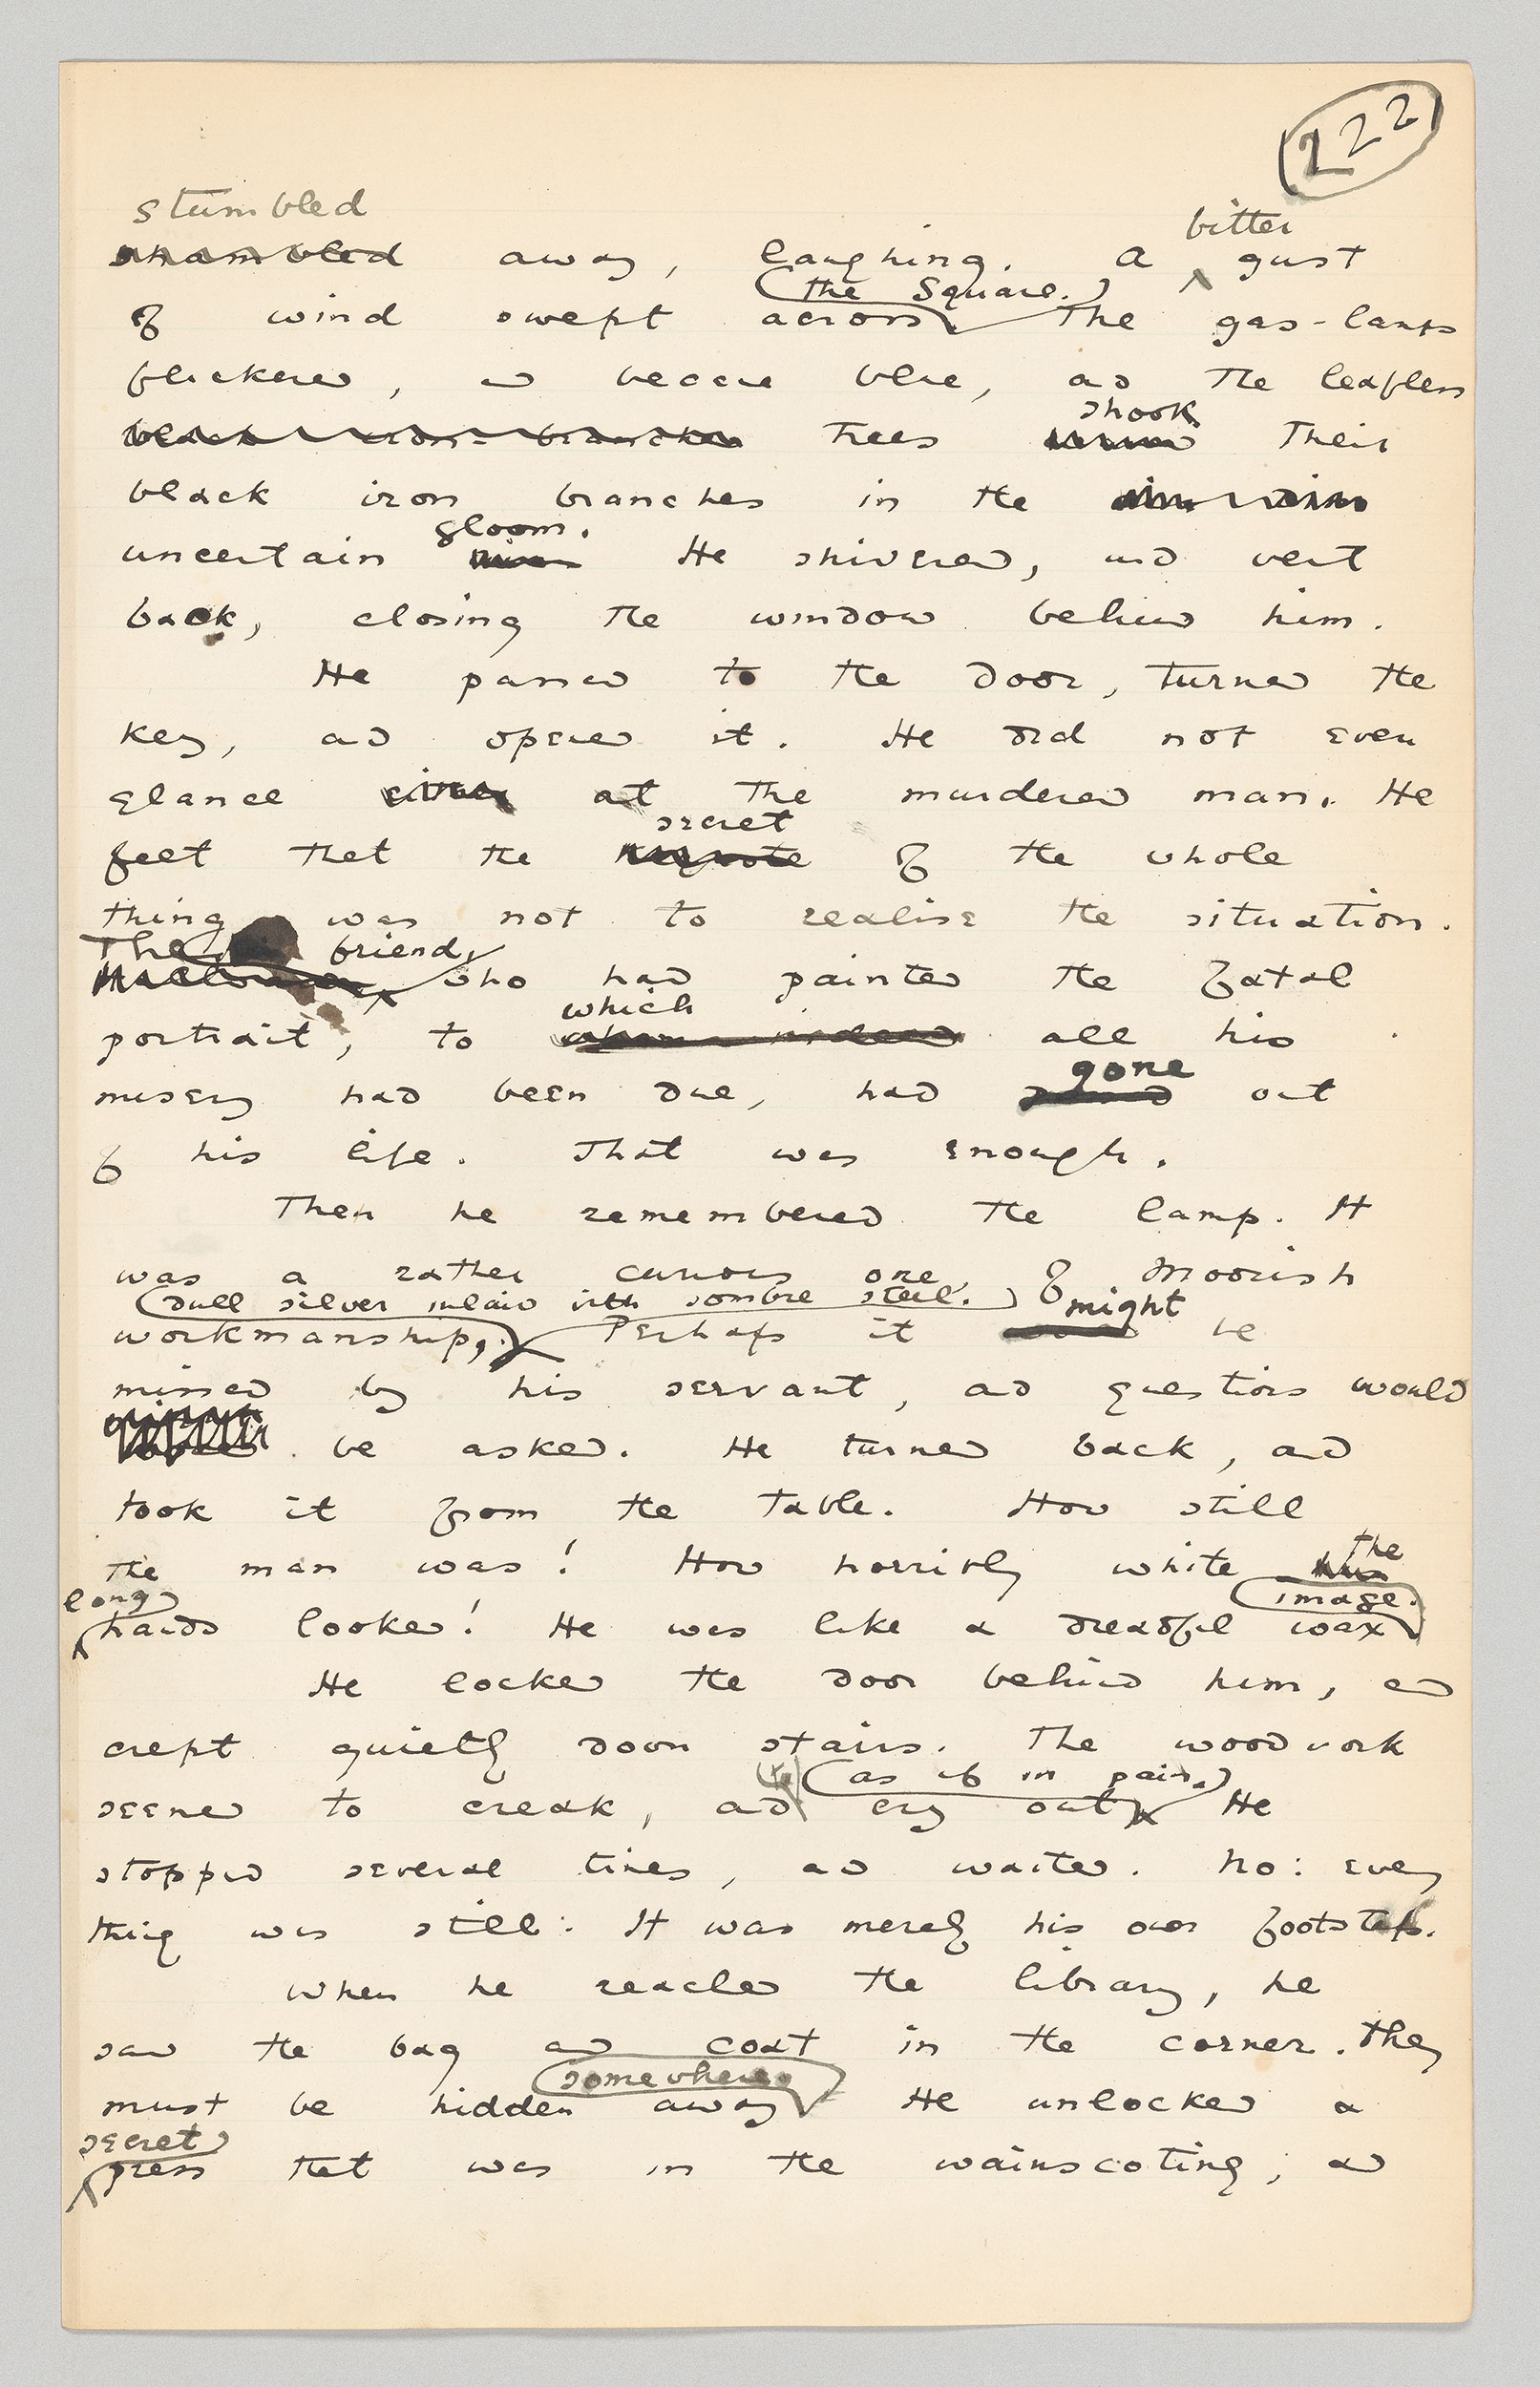 222
stumbled
shambled away, laughing. A bitter gust
of wind swept across the Square. The gas-lamps
flickered, and became blue, and the leafless
black iron branches trees shook their
black iron branches in the
uncertain gloom. He shivered, and went
back, closing the window behind him.
He passed to the door, turned the
key, and opened it. He did not even
glance either at the murdered man. He
felt that the secret of the whole
thing was not to realise the situation.
The friend, who had painted the fatal
portrait, to which all his
misery had been due, had gone out
of his life. That was enough.
Then he remembered the lamp. It
was a rather curious one of Moorish
dull silver inlaid with sombre steel. might
workmanship, Perhaps it be
missed by his servant, and questions would
be asked. He turned back, and
took it from the table. How still
the man was! How horribly white the
long image.
hands looked! He was like a dreadful wax
He locked the door behind him, and
crept quietly down stairs. The woodwork
as if in pain.
seemed to creak, and cry out He
stopped several times, and waited. No: every
thing was still. It was merely his own footsteps.
When he reached the library, he
saw the bag and coat in the corner. They
somewhere.
must be hidden away He unlocked a
secret
press that was in the wainscoting, and